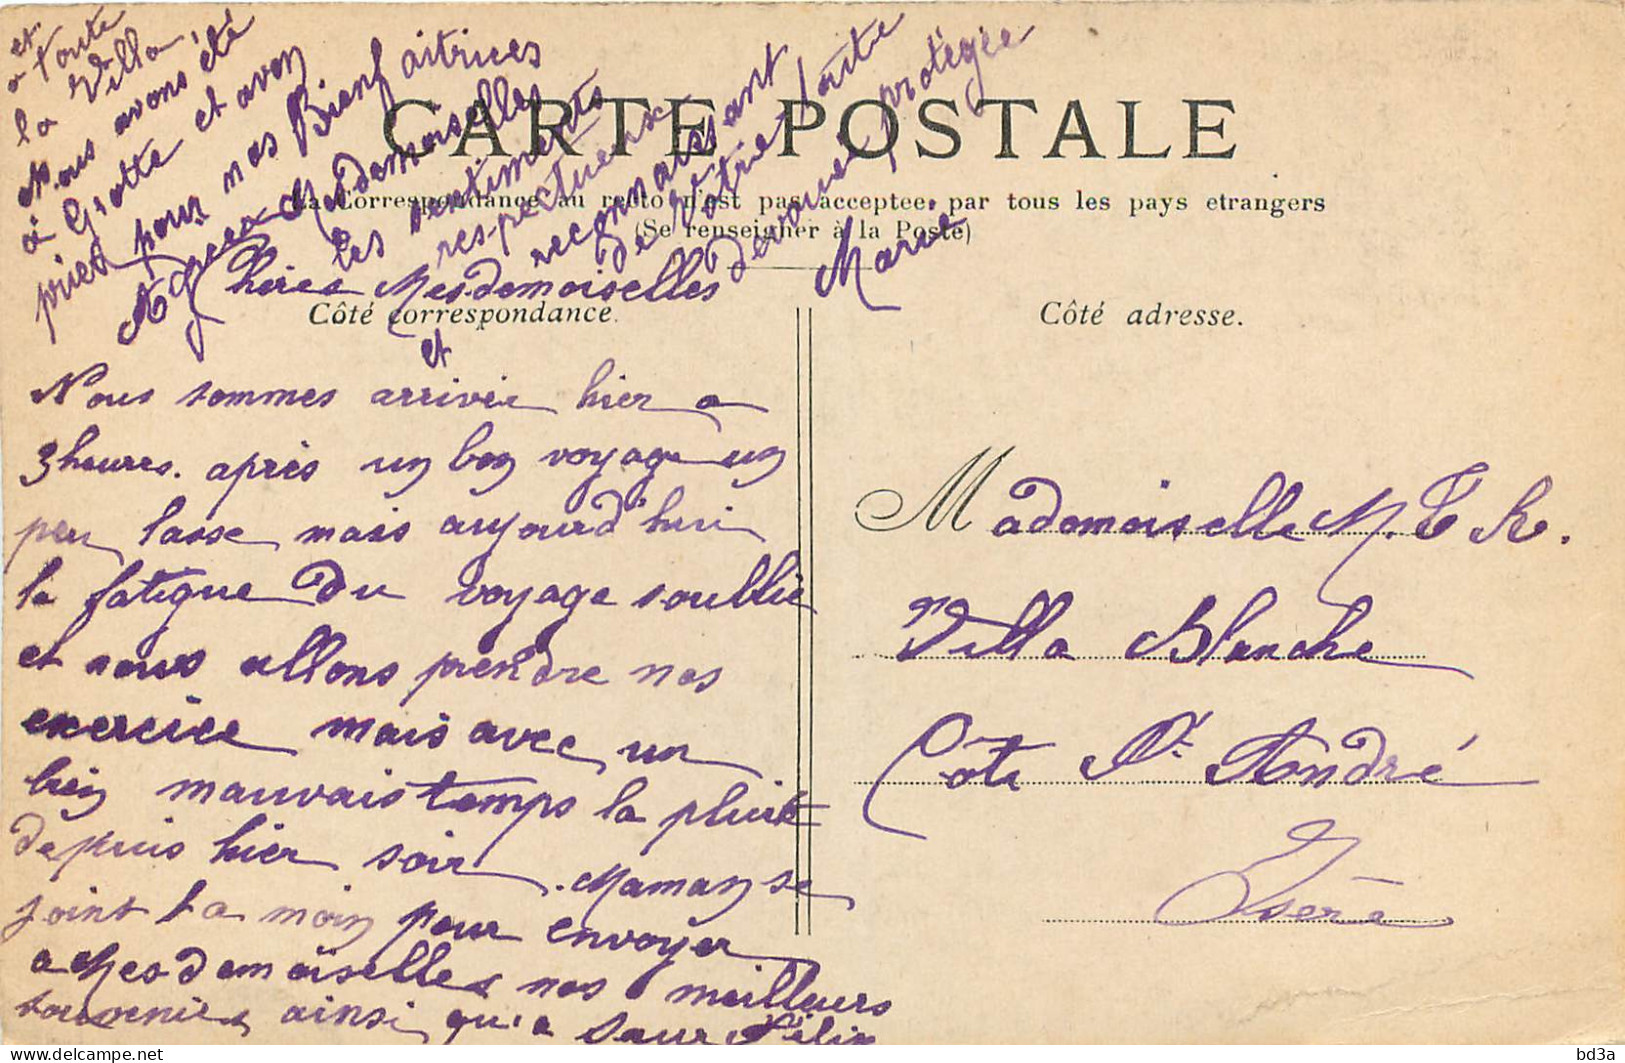 CARTE POSTALE
La Correspondance au recto n'est pas acceptee, par tous les pays etrangers
(Se renseigner à la Poste)
Côté correspondance.
Côté adresse.
Chères Mesdemoiselles
et
Nous sommes arrivée hier a
3 heures. après un bon voyage un
peu lasse mais aujourd'hui
la fatigue du voyage s'oublie
et nous allons prendre nos
exercice mais avec un
bien mauvais temps la pluit
depuis hier soir. Maman se
joint ta moin pour envoyer
a Mesdemoiselles nos meilleurs
souvenirs ainsi qu'a Sœur Félix
et
a toute
la Villa.
Nous avons été
à Grotte et avon
priez pour nos Bienfaitrices
Agréez Mesdemoiselles
les sentiments
respectueux
reconnaissant
de Votre toute
dévouée protégée
Marie
Mademoiselle M. T. R.
Villa Blanche
Côte St André
Isère
bd3a